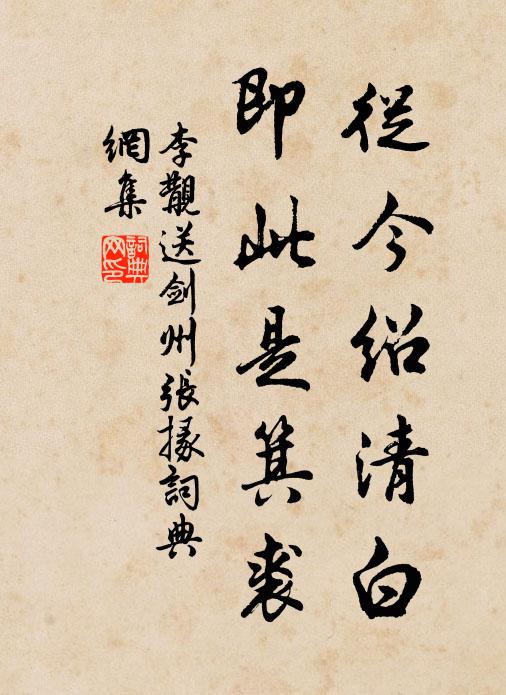 從今绍清白
即此是箕裘
李觀送剑州張掾詞典
網集
詞典
网印